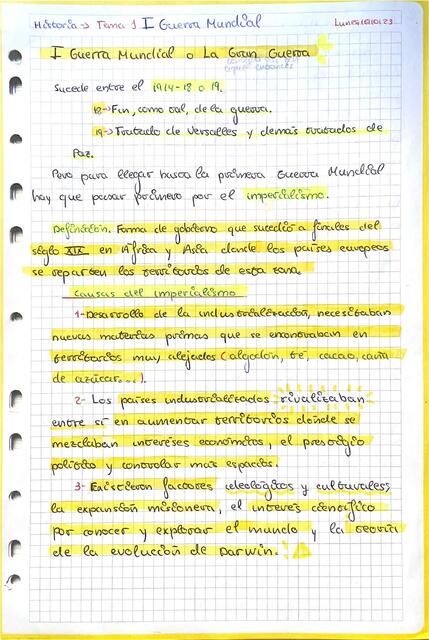 Historia → Tema 1 I Guerra Mundial Lunes
I Guerra Mundial o La Gran Guerra
Sucede entre el 1914-18 o 19.
18→ Fin, como tal, de la guerra.
19→ Tratado de Versalles y demás tratados de
Paz.
Pero para llegar hasta la primera Guerra Mundial
hay que pasar primero por el imperialismo.
Definición. Forma de gobierno que sucedió a finales del
siglo XIX en África y Asia donde los países europeos
se reparten los territorios de esta zona.
Causas del imperialismo
1- Desarrollo de la industrialización, necesitaban
nuevas materias primas que se encontraban en
territorios muy alejados (algodón, té, cacao, caña
de azúcar...).
2- Los países industrializados rivalizaban
entre sí en aumentar territorios donde se
mezclaban intereses económicos, el prestigio
político y controlar mas espacios.
3- Existieron factores ideológicos y culturales;
la expansión misionera, el interés científico
por conocer y explorar el mundo y la teoría
de la evolución de Darwin.